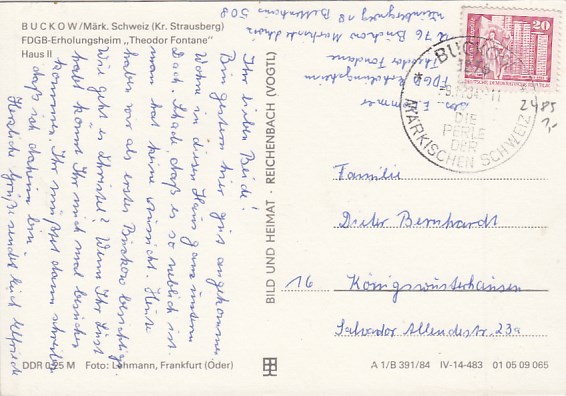 BUCKOW/Märk. Schweiz (Kr. Strausberg)
FDGB-Erholungsheim „Theodor Fontane"
Haus II
Ihr lieben Beide!
Bin gestern hier gut angekommen.
Wohne in diesem Haus ganz unterm
Dach. Schade daß es so neblich ist.
man hat keine Aussicht. Heute
haben wir als erstes Buckow besichtigt.
Wie geht es Christel? Wenn Ihr Lust
habt könnt Ihr mich mal besuchen
kommen, Ihr müßt dann schreiben
daß ich daheim bin.
Herzliche Grüße sendet Euch
DDR 0,25 M Foto: Lohmann, Frankfurt (Oder)
BILD UND HEIMAT · REICHENBACH (VOGTL)
FDGB Erholungsheim
Theodor Fontane
1276 Buckow Märkische Schweiz
508
20
DDR
BUCKOW
1276
-11
DIE
PERLE
DER
MÄRKISCHEN SCHWEIZ
2485
1,-
Familie
Dieter Bernhardt
16 Königswusterhausen
Salvador Allendestr. 23a
A 1/B 391/84 IV-14-483 01 05 09 065